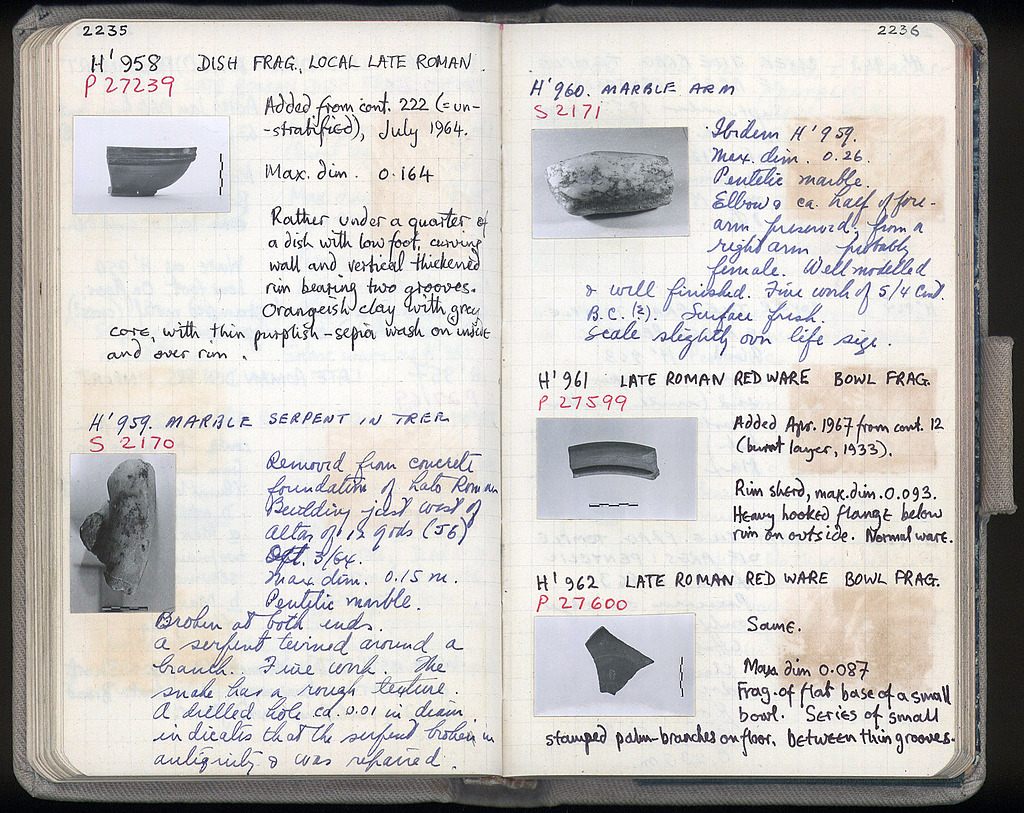 2235
H'958 DISH FRAG., LOCAL LATE ROMAN.
P 27239
Added from cont. 222 (= un-
-stratified), July 1964.
Max. dim. 0.164
Rather under a quarter of
a dish with low foot, curving
wall and vertical thickened
rim bearing two grooves.
Orangeish clay with grey
core, with thin purplish-sepia wash on inside
and over rim.
H'959. MARBLE SERPENT IN TREE
S 2170
Removed from concrete
foundation of Late Roman
Building just west of
altar of 12 gods (J6)
Sept. 3/64.
Max. dim. 0.15 m.
Pentelic marble.
Broken at both ends.
A serpent twined around a
branch. Fine work. The
snake has a rough texture.
A drilled hole ca. 0.01 in diam
indicates that the serpent broken in
antiquity & was repaired.
2236
H'960. MARBLE ARM
S 2171
Ibidem H'959.
Max. dim. 0.26.
Pentelic marble.
Elbow & ca. half of fore-
arm preserved: from a
right arm probably
female. Well modelled
& well finished. Fine work of 5/4 Cent.
B.C. (?). Surface fresh.
Scale slightly over life size.
H'961 LATE ROMAN RED WARE BOWL FRAG.
P 27599
Added Apr. 1967 from cont. 12
(burnt layer, 1933).
Rim sherd, max. dim. 0.093.
Heavy hooked flange below
rim on outside. Normal ware.
H'962 LATE ROMAN RED WARE BOWL FRAG.
P 27600
Same.
Max dim 0.087
Frag. of flat base of a small
bowl. Series of small
stamped palm-branches on floor, between thin grooves.